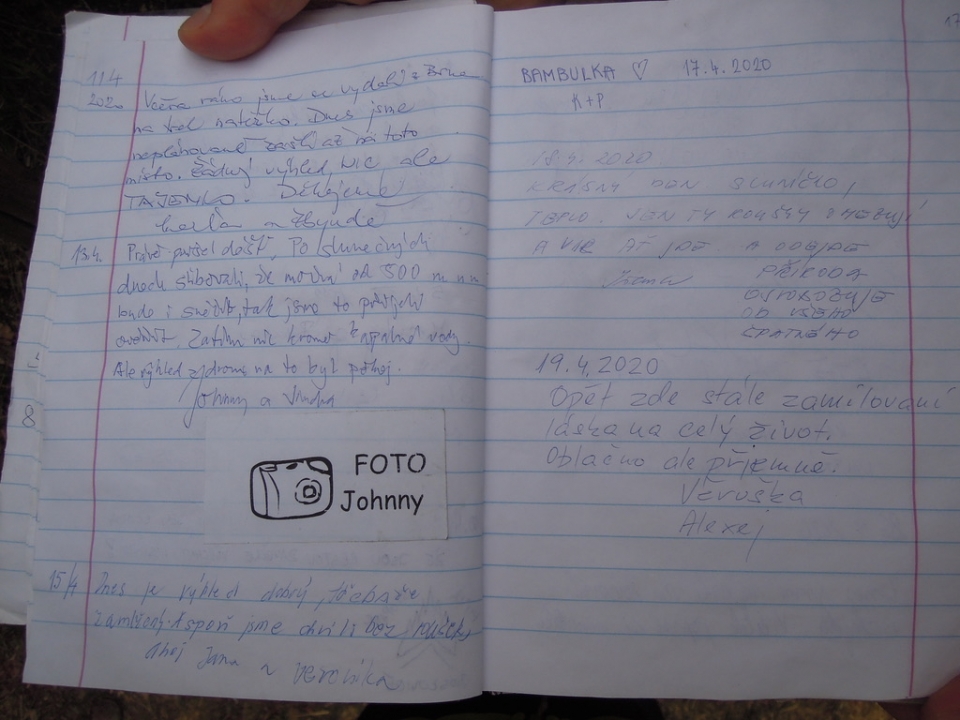 11.4
2020 Včera ráno jsme se vydali z Brna
na neplánovaně Dnes jsme
neplánovaně zašli až na toto
místo. Žádný výhled, nic ale
TAJEMNO. Děkujeme
13.4. Právě přešel déšť. Po slunečných
dnech slibovali, že možná od 500 m n.m.
bude i sněžit, tak jsme to přijeli
ověřit. Zatím nic kromě kapalné vody.
Ale výhled na to byl pěknej.
Johnny a
FOTO
Johnny
8
15/4 Dnes je výhled dobrý, třebaže
zamlžený. Aspoň jsme chvíli bez roušky
Ahoj Jana a Veronika
BAMBULKA ♡ 17.4.2020
K+P
18.4. 2020
KRÁSNÝ DEN SLUNÍČKO,
TEPLO. JEN TY ROUŠKY
A VIR AŤ JDE A ODEJDE
PŘÍRODA
OSVOBOZUJE
OD VŠEHO
ŠPATNÉHO
19.4.2020
Opět zde stále zamilovaní
láska na celý život.
Oblačno ale příjemně.
Věruška
Alexej
17